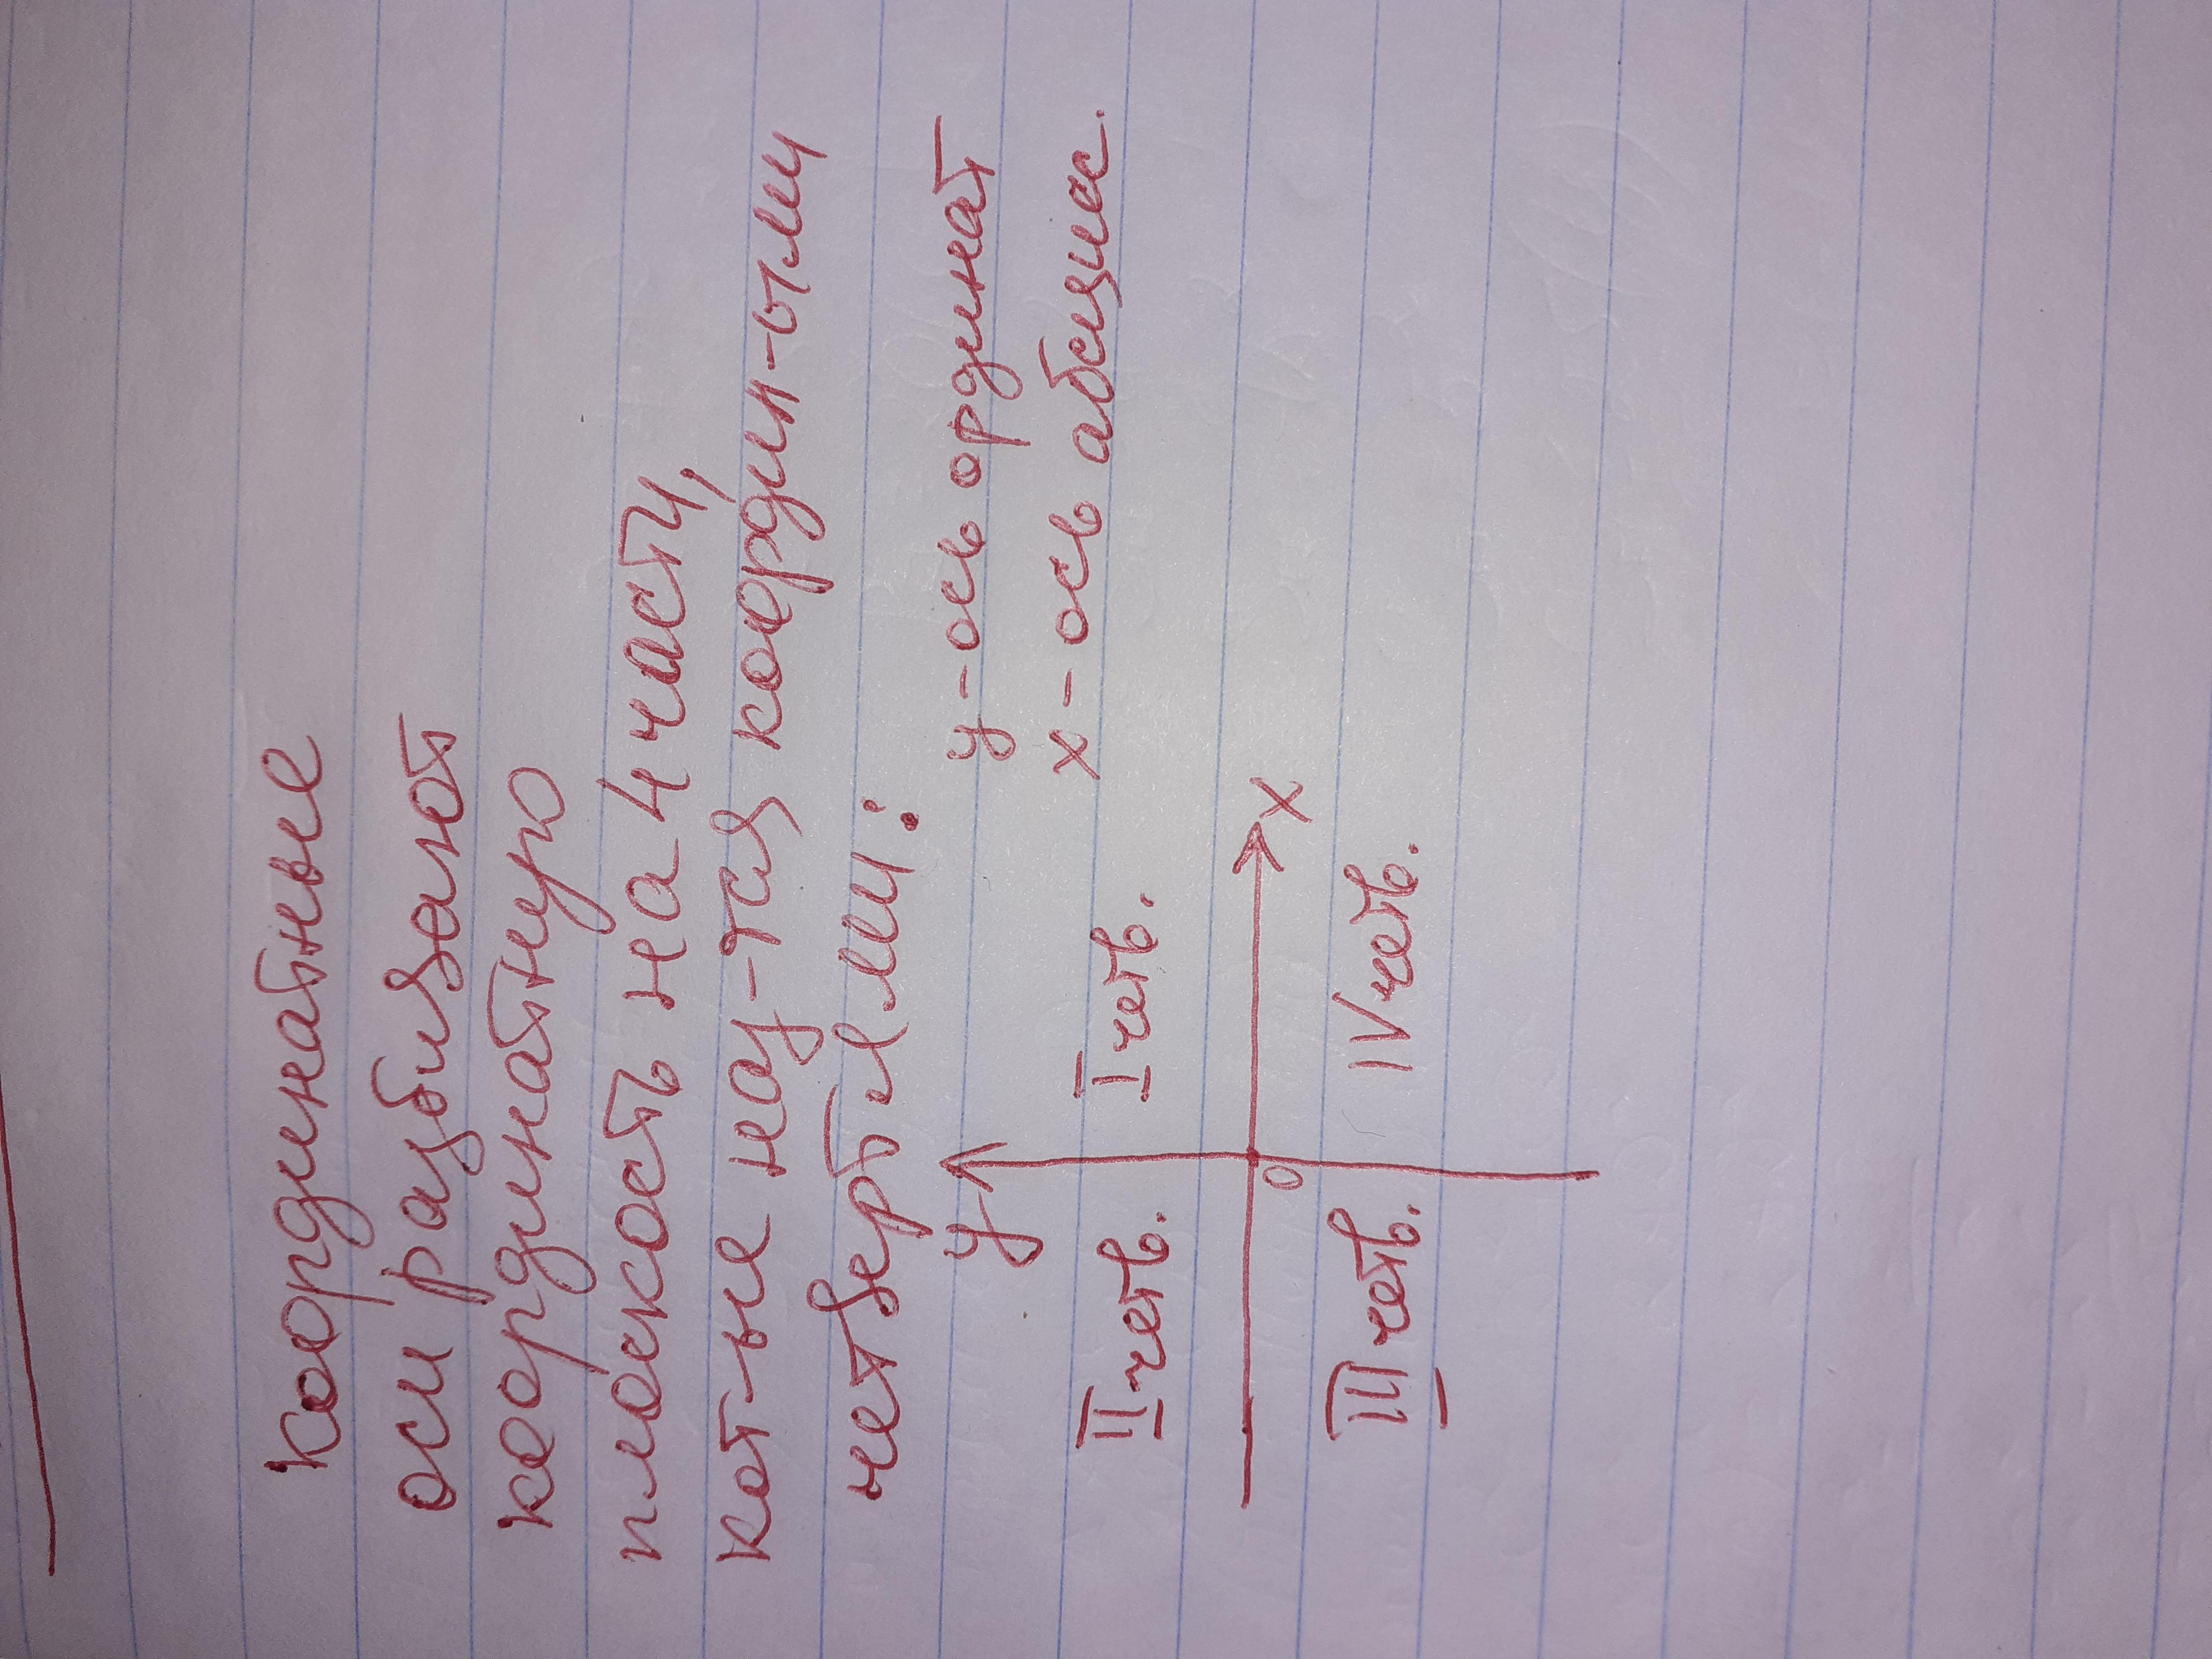 координатные
оси разбивают
координатную
плоскость на 4 части,
кот-ые наз-тся координ-ыми
четвертями:
y - ось ординат
x - ось абсцисс.
y
II четв. I четв.
x
0
III четв. IV четв.